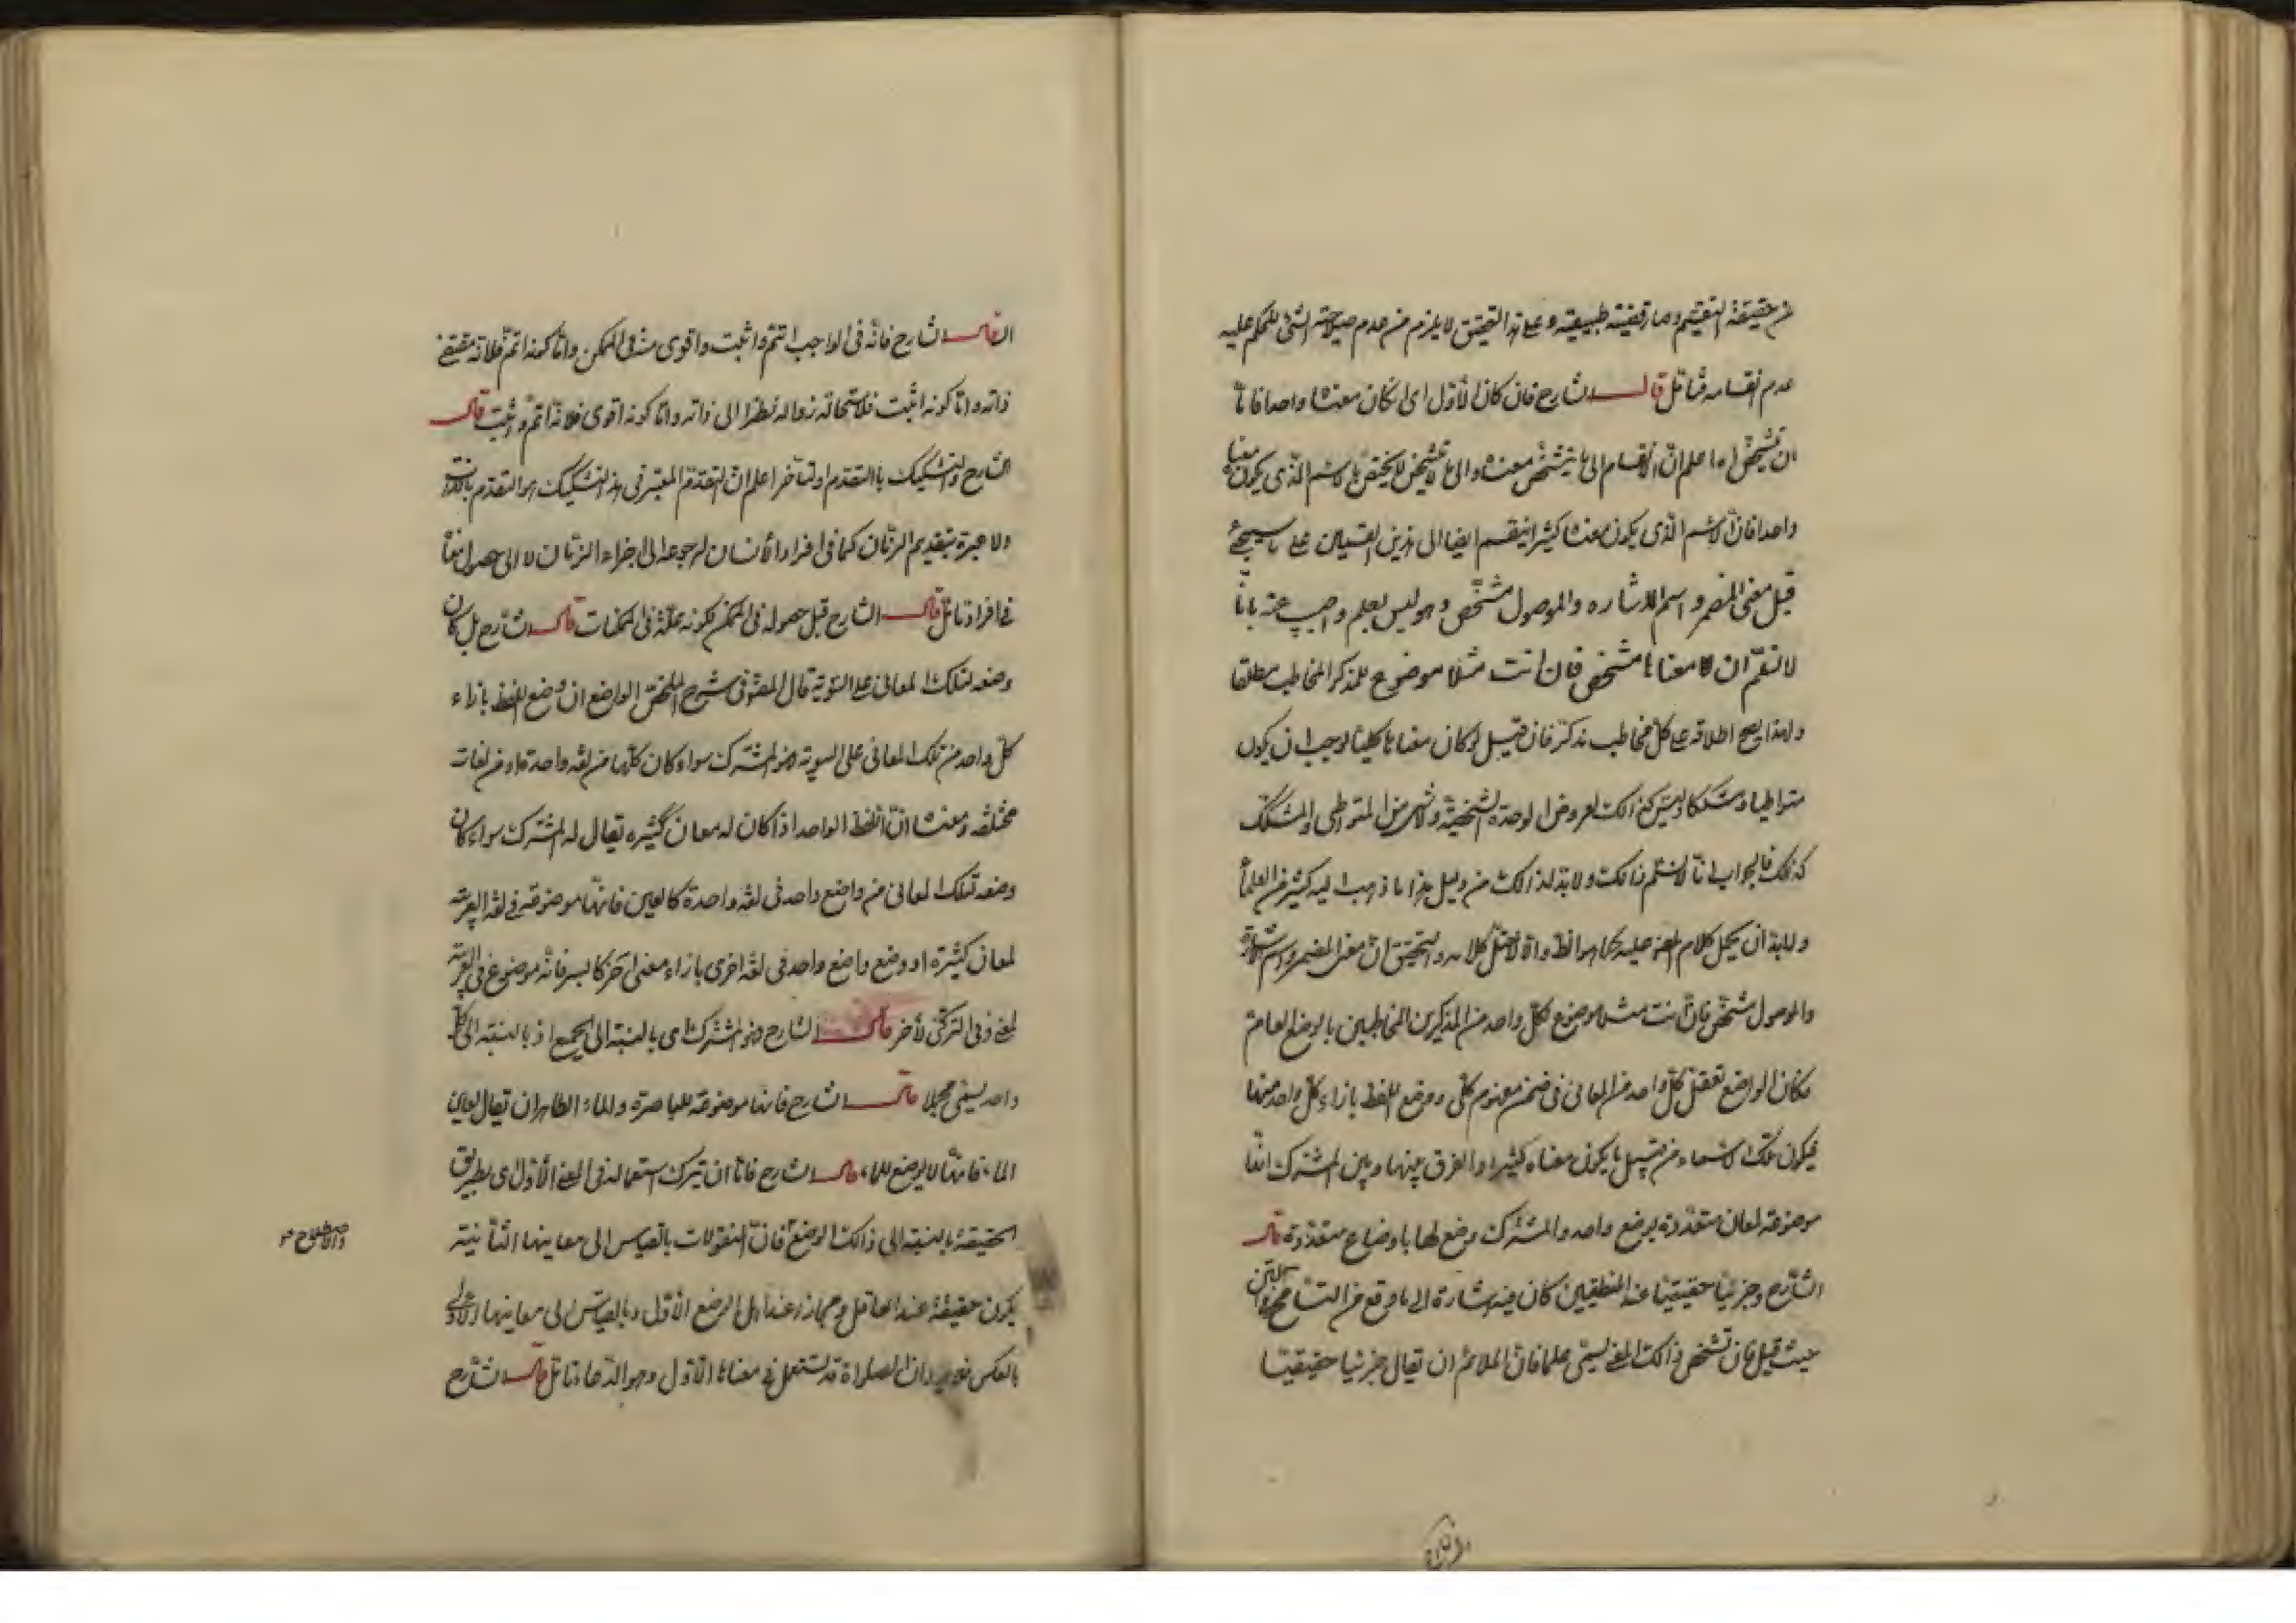 عن حقيقة التقسيم وصار قضية طبيعية وعلى هذا التحقيق لا يلزم من عدم صلاحية الشئ للحكم عليه
عدم انقسامه فتأمل قال الشارح فان كان الأول اى ان كان معناه واحدا فاما
ان تشخص اه اعلم ان الانقسام الى ما يتشخص معناه والى ما لا يتشخص لا يختص بالاسم الذى يكون معناه
واحدا فان الاسم الذى يكون معناه كثيرا ينقسم ايضا الى هذين القسمين على ما سيجئ
قيل معنى المضمر واسم الاشاره والموصول مشخص وهو ليس بعلم واجيب عنه بانا
لا نسلم ان معناها مشخص فان انت مثلا موضوع للمذكر المخاطب مطلقا
ولهذا يصح اطلاقه على كل مخاطب مذكر فان قيل لو كان معناها كليا لوجب ان يكون
متواطيا او مشككا وليس كذالك لعروض الوحدة الشخصية ولا شئ من المتواطى والمشكك
كذلك فالجواب انا لا نسلم ذالك ولا بد لذالك من دليل هذا ما ذهب اليه كثير من العلماء
ولا بد ان يحمل كلام المص عليه كما هو الظ والا لاختل كلامه والتحقيق ان معنى المضمر واسم الاشارة
والموصول مشخص فان انت مثلا موضوع لكل واحد من المذكرين المخاطبين بالوضع العام
فكان الواضع تعقل كل واحد من المعانى فى ضمن مفهوم كلى ووضع اللفظ بازاء كل واحد منها
فيكون تلك الاسماء من قبيل ما يكون معناه كثيرا والفرق بينها وبين المشترك انها
موضوعة لمعان متعددة بوضع واحد والمشترك وضع لها باوضاع متعددة قال
الشارح وجزئيا حقيقيا عند المنطقيين كان فيه اشارة الى ما وقع من التسامح فى المتن
حيث قيل فان تشخص ذالك المعنى يسمى علما فان الملائم ان يقال جزئيا حقيقيا
قال الشارح فانه فى الواجب اتم واثبت واقوى منه فى الممكن واما كونه اتم فلانه مقتضى
ذاته واما كونه اثبت فلاستحالة زواله نظرا الى ذاته واما كونه اقوى فلانه اتم واثبت قال
الشارح والتشكيك بالتقدم والتأخر اعلم ان التقدم المعتبر فى هذا التشكيك هو التقدم بالذات
ولا عبرة بتقديم الزمان كما فى افراد الأنسان لرجوعه الى اجزاء الزمان لا الى حصول معناه
فى افراده تأمل قال الشارح قبل حصوله فى الممكن لكونه علة فى الممكنات قال الشارح بل كان
وضعه لتلك المعانى على السوية قال المص فى شرح الملخص الواضع ان وضع اللفظ بازاء
كل واحد من تلك المعانى على السوية فهو المشترك سواء كان كلها من لغة واحدة او من لغات
مختلفه ومعناه ان اللفظ الواحد اذا كان له معان كثيره يقال له المشترك سواء كان
وضعه لتلك المعانى من واضع واحد فى لغة واحدة كالعين فانها موضوعة فى لغة العربية
لمعان كثيرة او وضع واضع واحد فى لغة اخرى بازاء معنى آخر كالبسر فانه موضوع فى العربية
لمعنى وفى التركى لأخر قال الشارح فهو المشترك اى بالنسبة الى الجميع اذ بالنسبة الى كل
واحد يسمى مجملا قال الشارح فانها موضوعة للباصرة والماء الظاهر ان يقال لعين
الماء فانها لا يوضع للماء قال الشارح فاما ان يترك استعماله فى المعنى الأول اى بطريق
الحقيقة بالنسبة الى ذالك الوضع فان المنقولات بالقياس الى معاينها الثانية
والاصطلاح صح
يكون حقيقة عند الناقل ومجازا عند اهل الوضع الأول وبالقياس الى معاينها الاولى
بالعكس فلا يرد ان الصلواة قد يستعمل فى معناها الأول وهو الدعاء تأمل قال الشارح